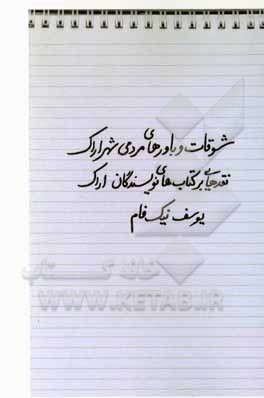 شوقات و باورهای مردمی شهر اراک
نقدهایی بر کتاب‌های نویسندگان اراک
یوسف نیک‌فام
خانه کتاب
WWW.KETAB.IR